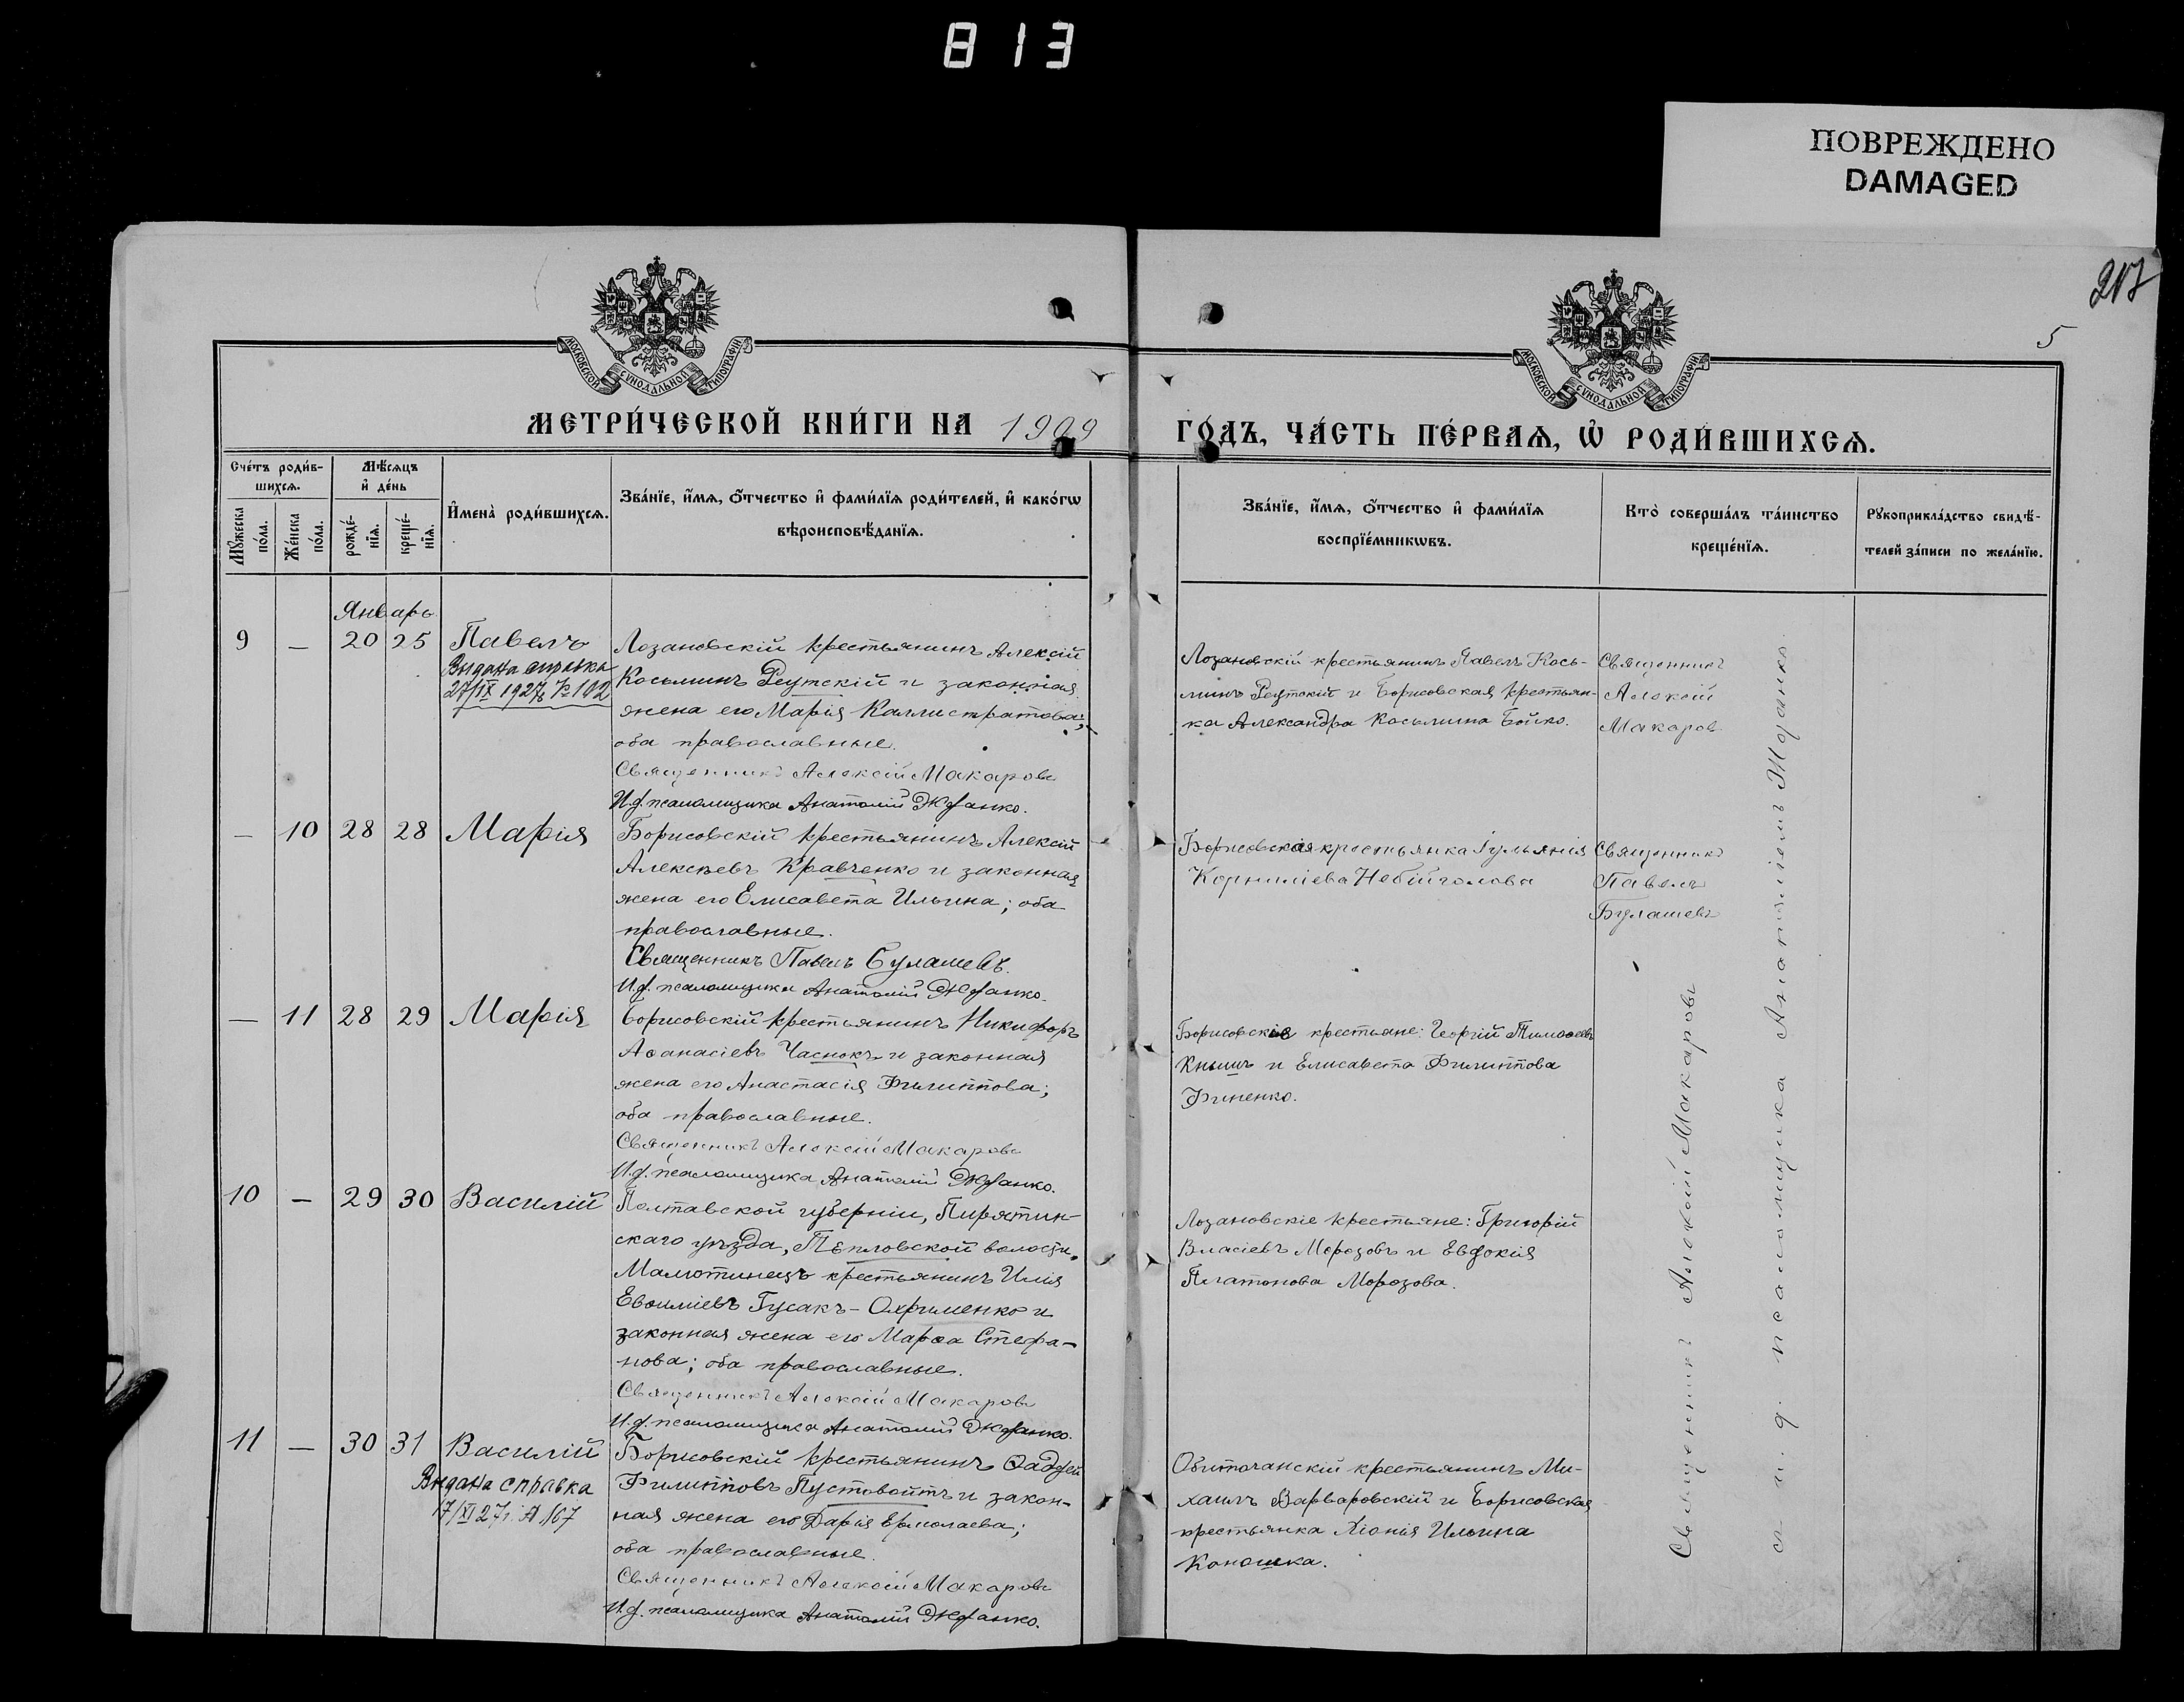 813
ПОВРЕЖДЕНО
DAMAGED
217
5
МОСКОВСКОЙ СУНОДАЛЬНОЙ ТИПОГРАФІИ
МОСКОВСКОЙ СУНОДАЛЬНОЙ ТИПОГРАФІИ
МЕТРИ́ЧЕСКОЙ КНИ́ГИ НА 1909
ГО́ДЪ, ЧА́СТЬ ПЕ́РВАѦ, Ѡ҆ РОДИ́ВШИХСѦ.
Сче́тъ роди́в-
шихсѧ.
Мꙋ́жеска
по́ла.
Же́нска
по́ла.
Мѣ́сѧцъ
и҆ де́нь
рожде́-
нїѧ.
креще́-
нїѧ.
И҆мена̀ роди́вшихсѧ.
Зва́нїе, и҆́мѧ, ѻ҆́тчество и҆ фами́лїѧ роди́телей, и҆ како́гѡ
вѣроисповѣ́данїѧ.
Зва́нїе, и҆́мѧ, ѻ҆́тчество и҆ фами́лїѧ
воспрїе́мникѡвъ.
Кто̀ соверша́лъ та́инство
креще́нїѧ.
Рꙋкоприкла́дство свидѣ́-
телей за́писи по жела́нїю.
Январь
9 — 20 25 Павелъ
Выдана справка
27/IX 1927г № 102
Лозановскій крестьянинъ Алексій
Косьминъ Реутскій и законная
жена его Марія Каллистратова;
оба православные.
Священникъ Алексій Макаровъ
И.д. псаломщика Анатолій Жданко.
Лозановскій крестьянинъ Павелъ Кось-
минъ Реутскій и Борисовская крестьян-
ка Александра Косьмина Бойко.
Священникъ
Алексій
Макаров
— 10 28 28 Марія
Борисовскій крестьянинъ Алексій
Алексѣевъ Кравченко и законная
жена его Елисавета Ильина; оба
православные.
Священникъ Павелъ Булашевъ.
И.д. псаломщика Анатолій Жданко.
Борисовская крестьянка Іульянія
Корниліева Небійголова
Священникъ
Павелъ
Булашевъ
— 11 28 29 Марія
Борисовскій крестьянинъ Никифоръ
Аѳанасіевъ Часнокъ и законная
жена его Анастасія Филиппова;
оба православные.
Священникъ Алексій Макаровъ
И.д. псаломщика Анатолій Жданко.
Борисовскіе крестьяне: Георгій Тимоѳеевъ
Кнышъ и Елисавета Филиппова
Финенко.
10 — 29 30 Василій
Полтавской губерніи, Пирятин-
скаго уѣзда, Тепловской волости,
Малютинецъ крестьянинъ Илія
Евѳиміевъ Гусакъ-Охрименко и
законная жена его Марѳа Стефа-
нова; оба православные.
Священникъ Алексій Макаровъ
И.д. псаломщика Анатолій Жданко.
Лозановскіе крестьяне: Григорій
Власіевъ Морозовъ и Евдокія
Платонова Морозова.
11 — 30 31 Василій
Выдана справка
17/XI 27г. № 167
Борисовскій крестьянинъ Ѳаддей
Филипповъ Пустовойтъ и закон-
ная жена его Дарія Ермолаева;
оба православные.
Священникъ Алексій Макаровъ
И.д. псаломщика Анатолій Жданко.
Обиточанскій крестьянинъ Ми-
хаилъ Варваровскій и Борисовская
крестьянка Хіонія Ильина
Коношка.
Священникъ Алексій Макаровъ
съ и. д. псаломщика Анатоліемъ Жданко